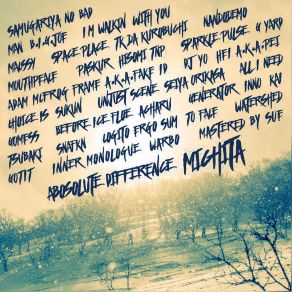 SAMUGARIYA NO BAD
MAN B.I.G.JOE I'M WALKIN' WITH YOU NANDODEMO
MAISSY SPACE PLACE TK DA KUROBUCHI SPARKLE PULSE G YARD
MOUTHPEACE PASKUR HISOMI TNP DJ YO HFI A.K.A.PEI
ADAM MCFROG FRAME A.K.A.FAKE ID ALL I NEED
CHOICE IS SUKIN UNJUST SCENE SEIYA ORIKASA GENERATOR INNO KAI
GOMESS BEFORE ICE FLOE AGHARU TO FACE WATERSHED
TSUBAKI SNAFKN COGITO ERGO SUM MASTERED BY SUE
GOTIT INNER MONOLOGUE WARBO
ABSOLUTE DIFFERENCE MICHITA